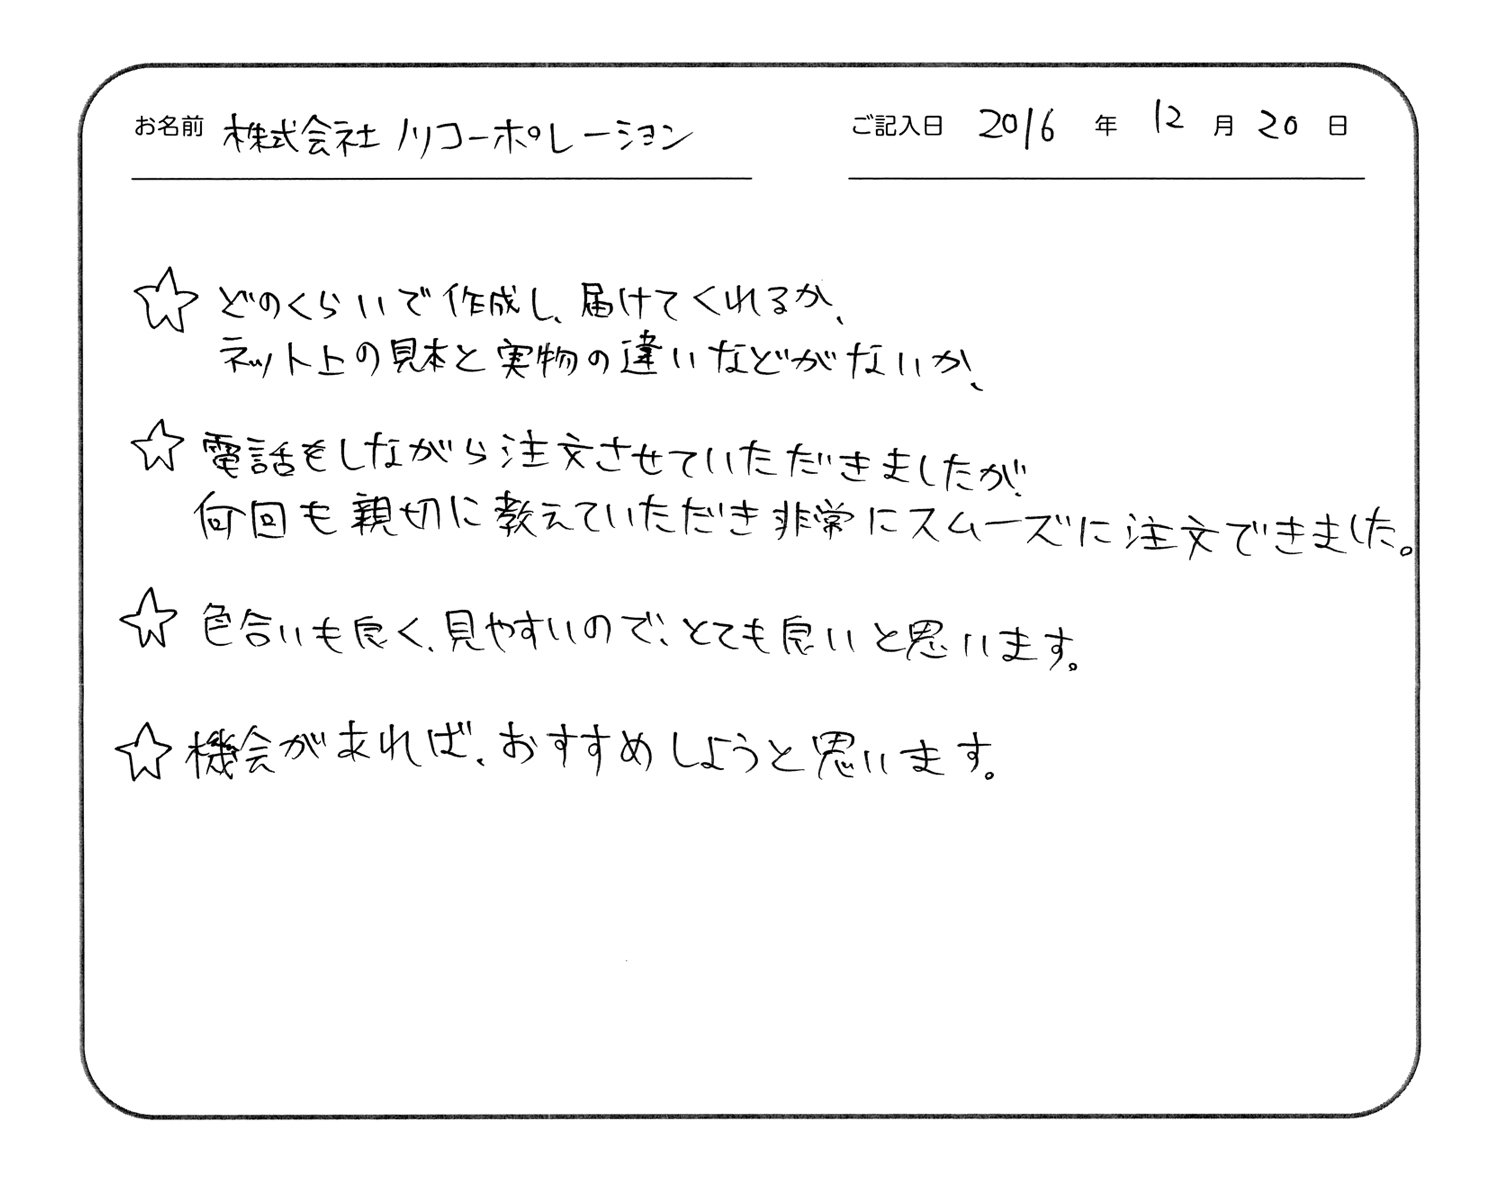 お名前 株式会社ノリコーポレーション ご記入日 2016 年 12 月 20 日
☆ どのくらいで作成し、届けてくれるか、
ネット上の見本と実物の違いなどがないか、
☆ 電話をしながら注文させていただきましたが、
何回も親切に教えていただき非常にスムーズに注文できました。
☆ 色合いも良く、見やすいので、とても良いと思います。
☆ 機会が来れば、おすすめしようと思います。